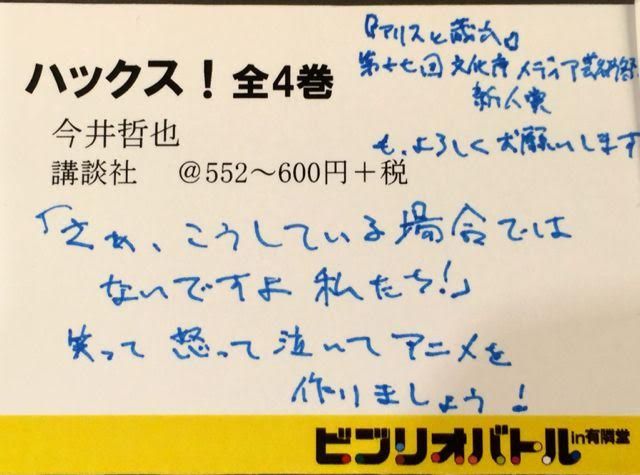 『アリスと蔵六』
第十七回文化庁メディア芸術祭
新人賞
も、よろしくお願いします
ハックス！全4巻
今井哲也
講談社　＠552～600円＋税
「さぁ、こうしている場合では
ないですよ 私たち！」
笑って 怒って 泣いて アニメを
作りましょう！
ビブリオバトル in 有隣堂